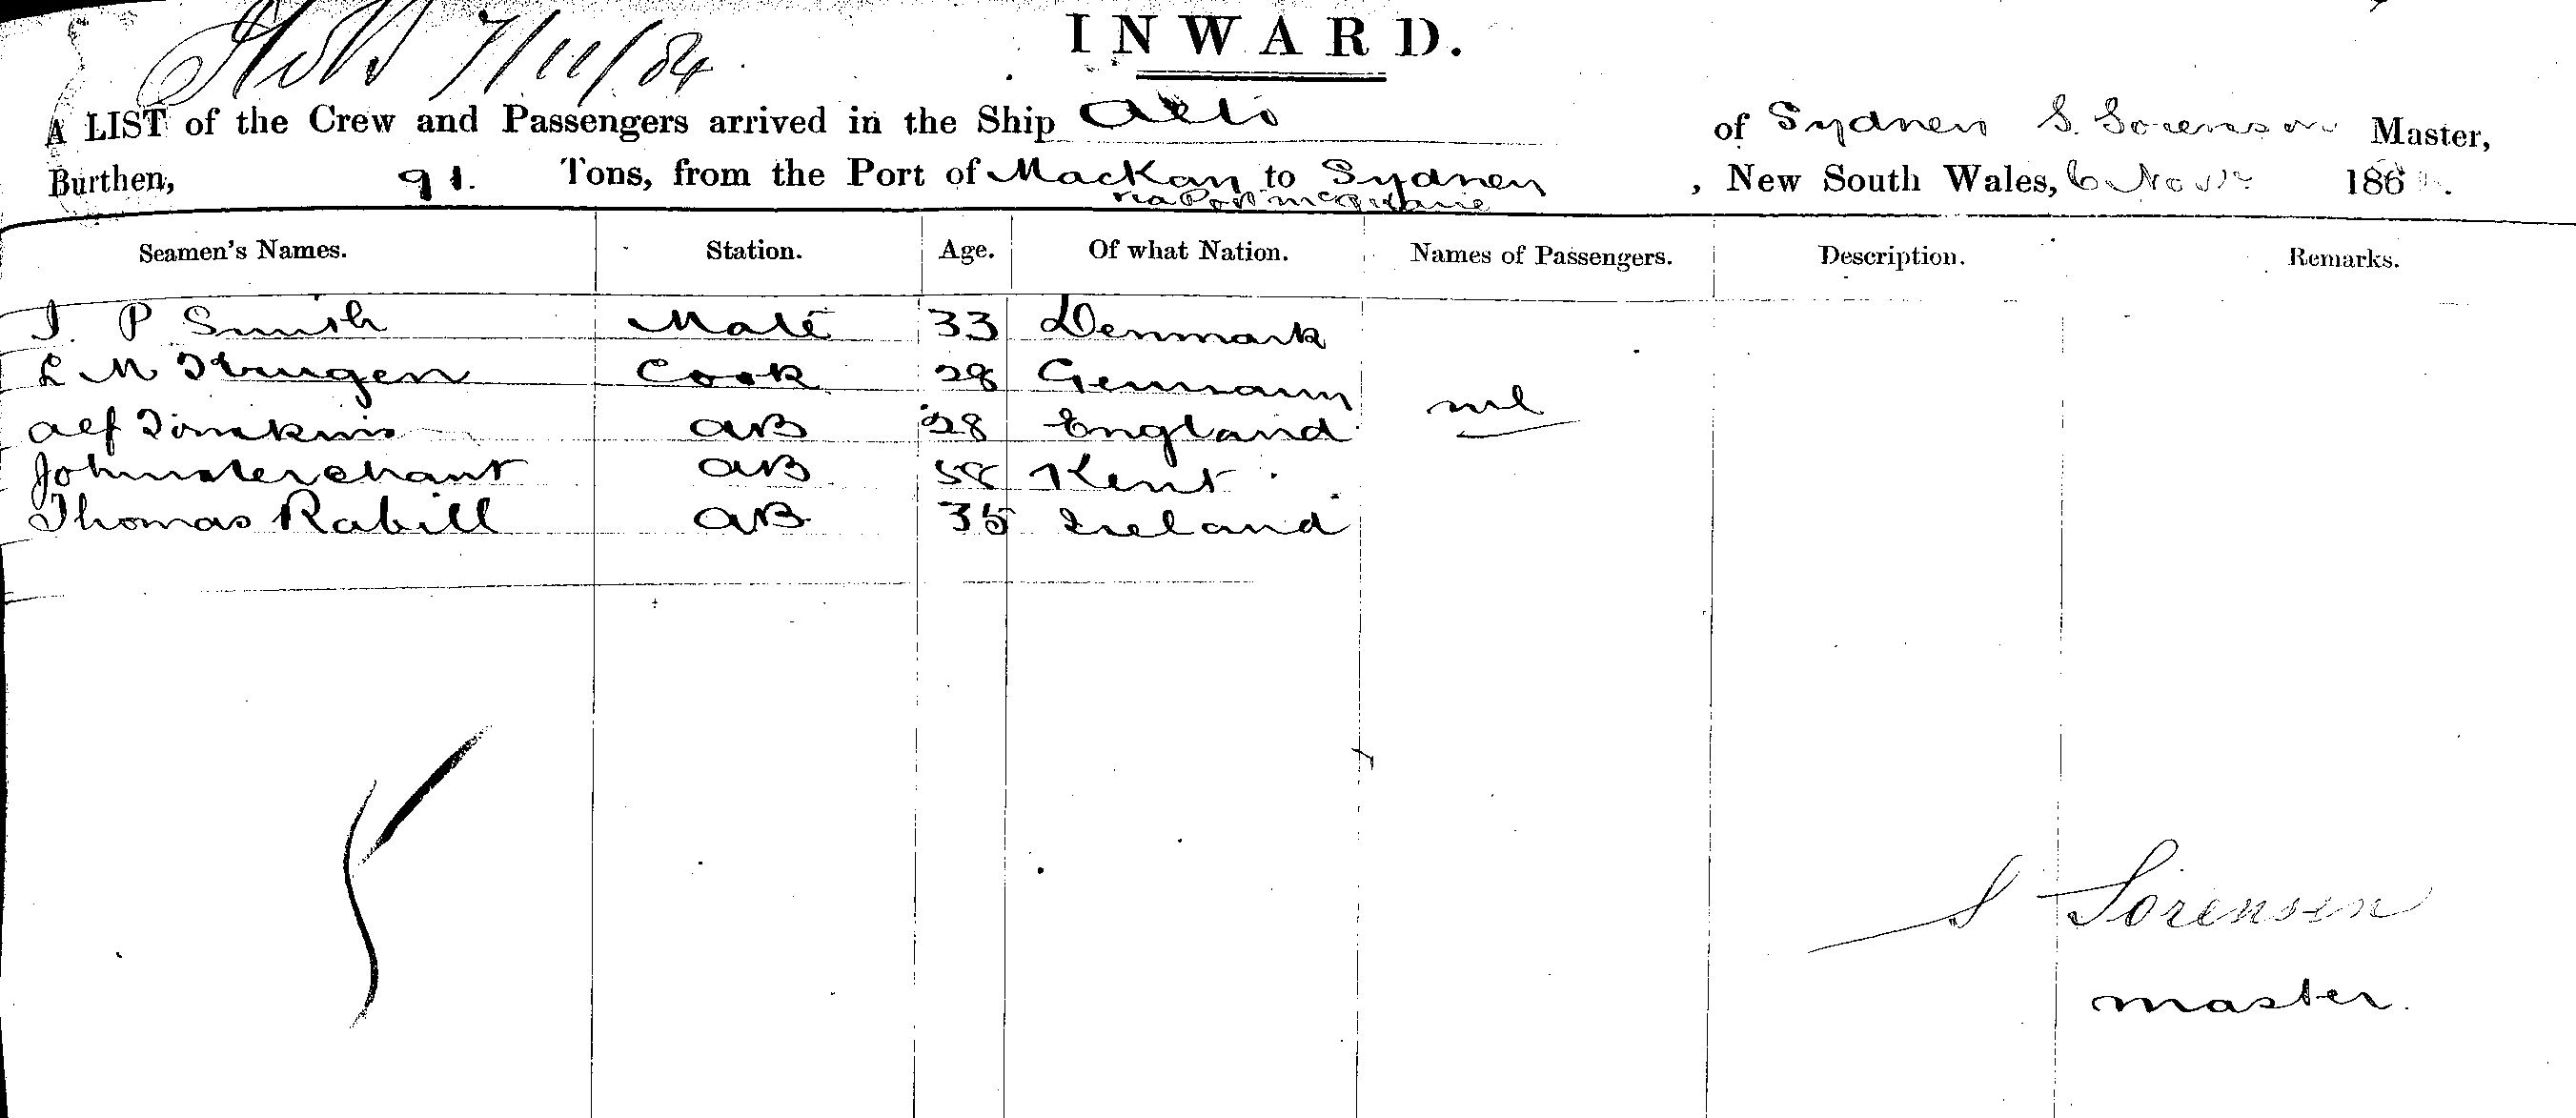 7/11/84
INWARD.
A LIST of the Crew and Passengers arrived in the Ship of Sydney S. Sorenson Master,
Burthen, 91. Tons, from the Port of Mackay to Sydney, New South Wales, 6 Novr 186
via Port McQuarie
Seamen's Names. Station. Age. Of what Nation. Names of Passengers. Description. Remarks.
J. P Smith Mate 33 Denmark
L M Cook 28 Germany
nil
Alf Timkins AB 28 England
John Merchant AB 58 Kent
Thomas Rabill AB 35 Ireland
S Sorensen
master.